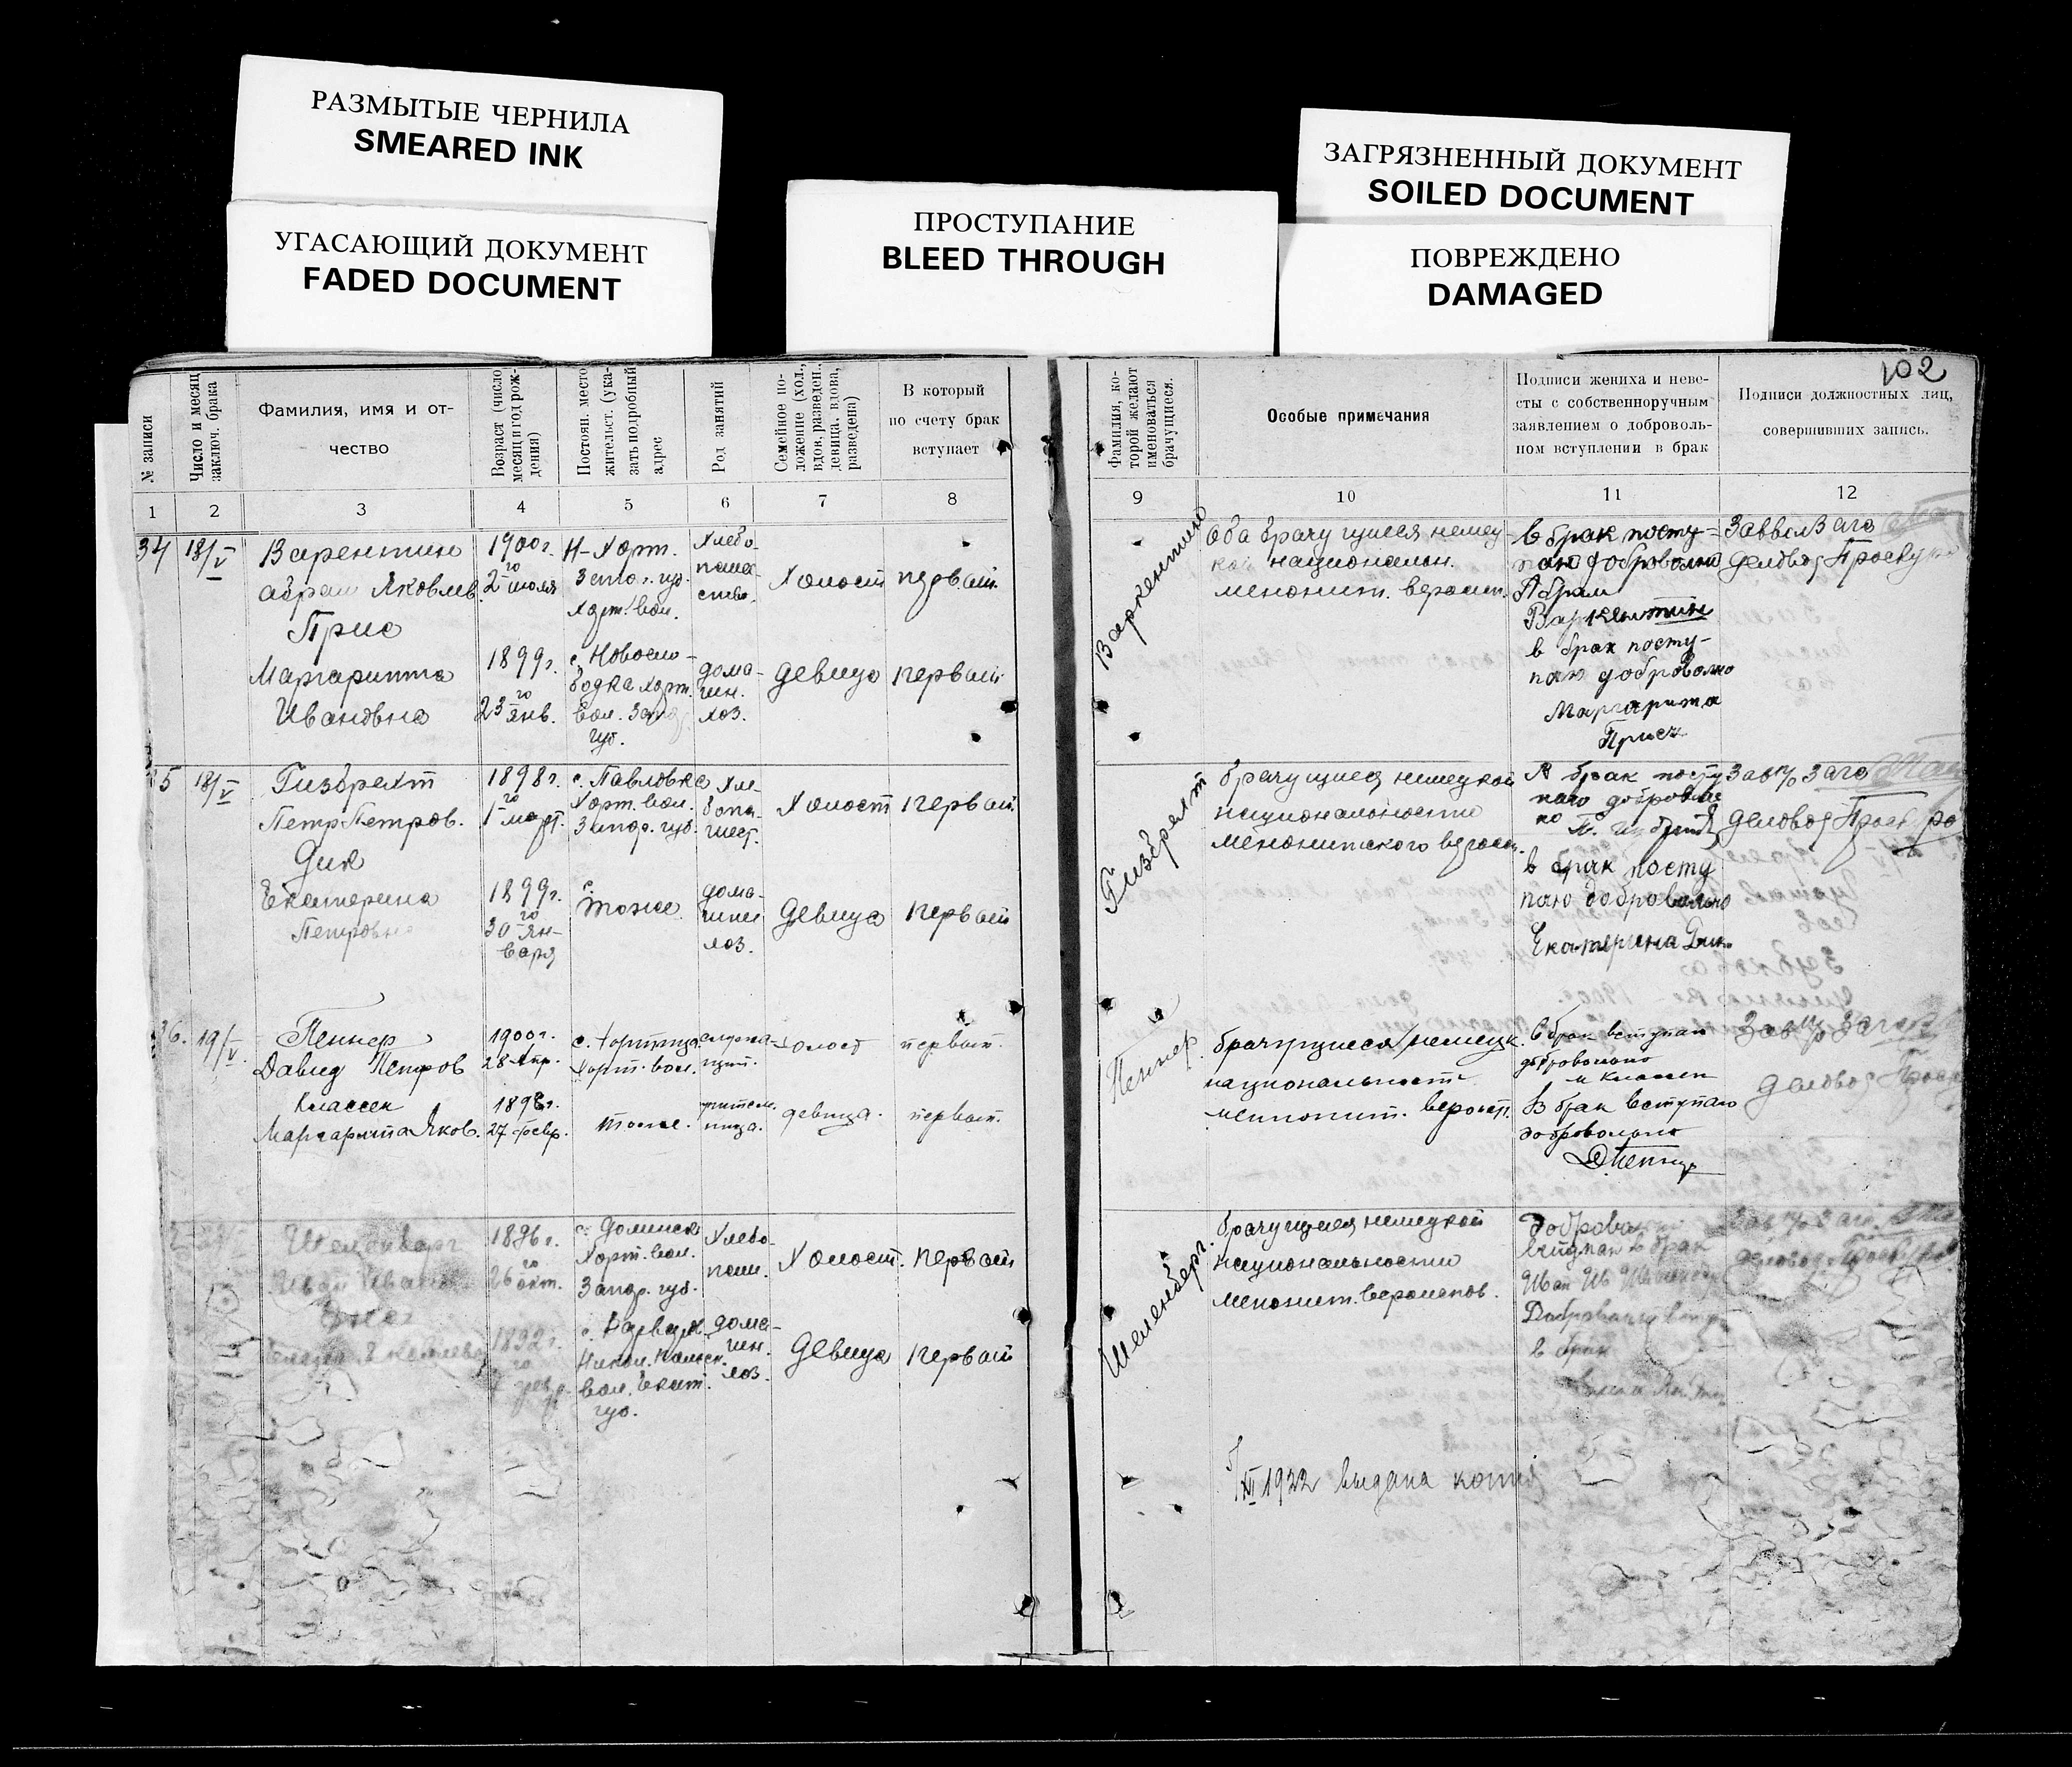 РАЗМЫТЫЕ ЧЕРНИЛА
SMEARED INK
УГАСАЮЩИЙ ДОКУМЕНТ
FADED DOCUMENT
ПРОСТУПАНИЕ
BLEED THROUGH
ЗАГРЯЗНЕННЫЙ ДОКУМЕНТ
SOILED DOCUMENT
ПОВРЕЖДЕНО
DAMAGED
102
№ записи
Число и месяц
заключ. брака
Фамилия, имя и от-
чество
Возраст (число
месяц и год рож-
дения)
Постоян. место
жительст. (ука-
зать подробный
адрес
Род занятий
Семейное по-
ложение (хол.,
вдов, разведен.,
девица, вдова,
разведена)
В который
по счету брак
вступает
Фамилия, ко-
торой желают
именоваться
брачущиеся.
Особые примечания
Подписи жениха и неве-
сты с собственноручным
заявлением о доброволь-
ном вступлении в брак
Подписи должностных лиц,
совершивших запись.
1 2 3 4 5 6 7 8 9 10 11 12
34
18/V
Варентин
Абрам Яковлев.
Прис
Маргаритта
Ивановна
1900 г.
2го июля
1899 г.
23го янв.
Н-Хорт.
Запо. губ.
Хорт. вол.
с. Новосло-
бодка Хорт.
вол. Запо
губ.
Хлебо-
паше-
ство.
дома-
шн.
хоз.
Холост
девица
первый
первый
Варкентин
Оба брачущиеся немец-
кой национальн.
менонит. вероисп.
в брак посту-
паю добровольно
Абрам
Варкентин
в брак посту-
паю добровольно
Маргарита
Присч
ЗавволЗагс
деловод
5
18/V
Гизбрехт
Петр Петров.
Дик
Екатерина
Петровна
1898 г.
1го март.
1899 г.
30го ян-
варя
с. Павловка
Хорт. вол.
Запор. губ.
с. тоже
Хле-
бопа-
шест.
дома-
шнее
хоз.
Холост
Девица
первый
первый
Гизбрехт
брачущиеся немецкой
национальности
менонитского вероисп.
В брак посту
паю добровль
но
в брак посту
паю добровольно
Екатерина Дик
Зав п/о Загс
деловод
36.
19/V.
Пеннер
Давид Петров
Классен
Маргарита Яков.
1900 г.
28 Апр.
1898 г.
27 февр.
с. Хортица
Хорт. вол.
тоже.
служа-
щий.
учитель-
ница.
холост
девица.
первый.
первый.
Пеннер.
брачущиеся немецк.
национальност.
меннонит. вероисп.
В брак вступаю
добровольно
М Классен
В брак вступаю
добровольно
Д Пеннер
Зав п/о Загс
деловод
Шеленберг
Иван Иван
1896 г.
26го окт.
1892 г.
Хорт. вол.
Запор. губ.
вол. Екат.
губ.
Хлебо-
паш.
дома-
шн.
хоз.
Холост.
Девица
первый
первый
Шеленберг.
брачущиеся немецкой
национальности
менонит. вероиспов.
в брак
в брак
1922 выдана копия